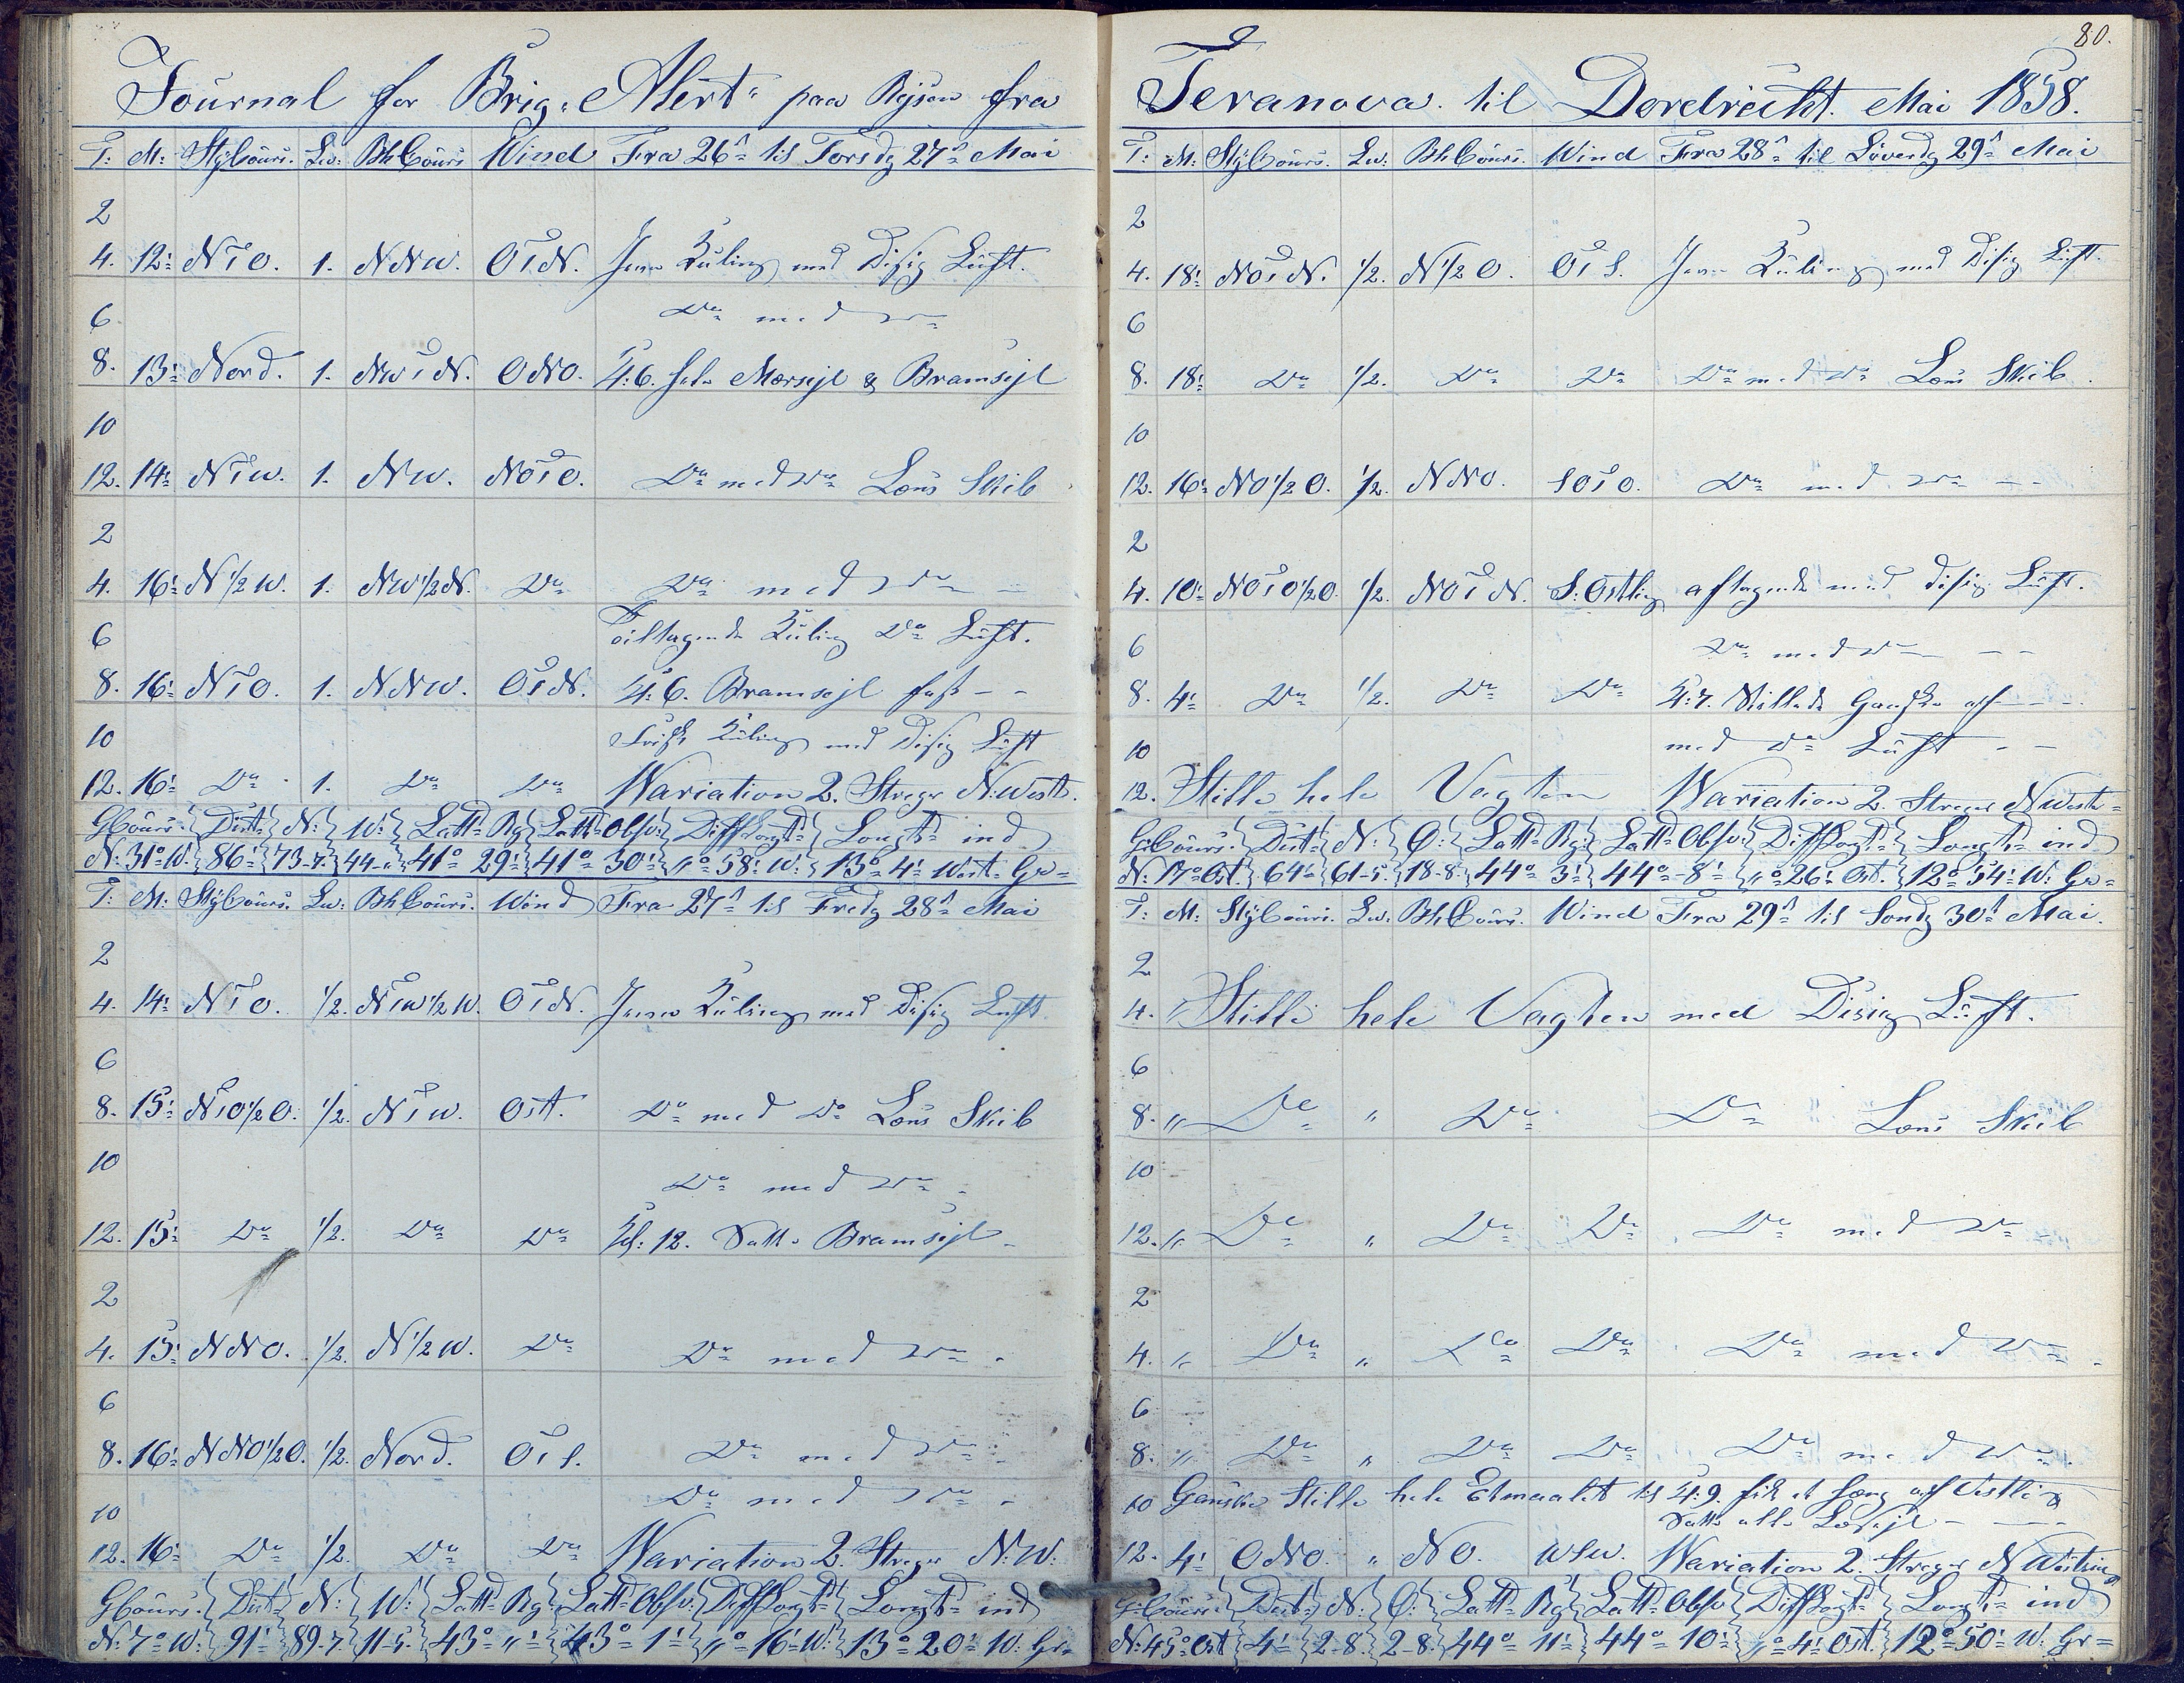 Journal for Brig „Alert“ paa Rejsen fra
T: M: StyCours. Lw: BhCours Wind Fra 26de til Torsdg 27de Mai
2
4. 12' NtO. 1. NNW. OtN. Jevn Kuling med Disig Luft.
6 Do med Do
8. 13' Nord. 1. NWtN. ONO. Kl: 6. Mersejl & Bramsejl
10
12. 14' NtW. 1. NW. NOtO. Do med Do Læns Skib
2
4. 16' N1/2W. 1. NW1/2N. Do Do med Do
6 Tiltagende Kuling Do Luft.
8. 16' NtO. 1. NNW. OtN. Kl: 6. Bramsejl fast - -
10 Frisk Kuling med Disig Luft
12. 16' Do 1. Do Do Wariation 2. Streger N:West.
GCours: Dist: N: W: Latt: Rg: Latt: Obsv: Diff Longt: Longt: ind
N: 31° W. 86' 73-7. 44-" 41° 29' 41° 30' "° 58' W: 13° 4' West: Gr=
T: M: StyCours. Lw: BhCours. Wind Fra 27de til Fredg 28de Mai
2
4. 14' NtO. 1/2. NtW1/2W. OtN. Jevn Kuling med Disig Luft
6
8. 15' NtO1/2O. 1/2. NtW. Ost. Do med Do Læns Skib
10 Do med Do
12. 15' Do 1/2. Do Do Kl: 12. Satte Bramsejl
2
4. 15' NNO. 1/2. N1/2W. Do Do med Do
6
8. 16' NNO1/2O. 1/2. Nord. OtS. Do med Do
10 Do med Do
12. 16' Do 1/2. Do Do Wariation 2. Streger N:W:
GCours: Dist: N: W: Latt: Rg: Latt: Obsv: Diff Longt: Longt: ind
N: 7° W: 91' 89-7. 11-5. 43° "' 43° 1' "° 16' W: 13° 20' W: Gr=
80.
Teranova. til Dordrecht. Mai 1858.
T: M: StyCours. Lw: BhCours. Wind Fra 28de til Löverdg 29de Mai
2
4. 18' NOtN. 1/2. N1/2O. OtS. Jevn Kuling med Disig Luft
6
8. 18' Do 1/2. Do Do Do med Do Læns Skib.
10
12. 16' NO1/2O. 1/2. NNO. SOtO. Do med Do - -
2
4. 10' NOtO1/2O. 1/2. NOtN. S:Ostlig aftagende med disig Luft.
6 Do med Do - -
8. 4' Do 1/2. Do Do Kl: 7. Stillede Ganske af - -
10 med Do Luft - -
12. Stille hele Vagten Wariation 2. Streger NWest=
GCours: Dist: N: O: Latt: Rg: Latt: Obsv: Diff Longt: Longt: ind
N: 17° Ost. 64' 61-5. 18-8. 44° 3' 44° 8' "° 26' Ost. 12° 54' W: Gr=
T: M: StyCours. Lw: BhCours. Wind Fra 29de til Sondg 30te Mai.
2
4. " Stille hele Vagten med Disig Luft.
6
8. " Do " Do Do Læns Skib
10
12. " Do " Do Do Do med Do
2
4. " Do " Do Do Do med Do
6
8. " Do " Do Do Do med Do
10 Ganske Stille hele Etmaalet til Kl: 9. fik et af Vestlig
Satte alle
12. 4' ONO. " NO. WSW. Wariation 2. Streger NWestvis
GCours: Dist: N: O: Latt: Rg: Latt: Obsv: Diff Longt: Longt: ind
N: 45° Ost 4' 2-8. 2-8. 44° 11' 44° 10' "° 4' Ost. 12° 50' W: Gr=